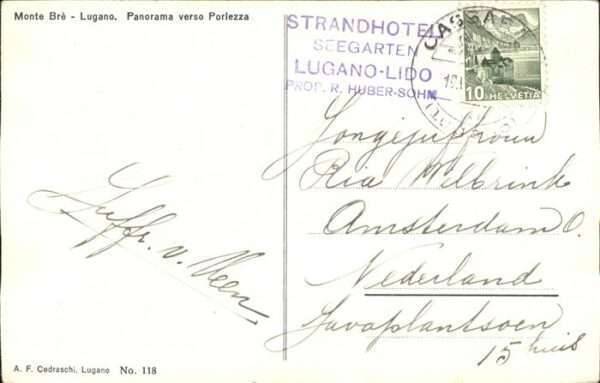 Monte Brè - Lugano. Panorama verso Porlezza
STRANDHOTEL
SEEGARTEN
LUGANO-LIDO
PROP. R. HUBER-SOHM
10 HELVETIA
Jongejuffrouw
Ria Welbrink
Amsterdam O.
Nederland
Javaplantsoen
15 huis
Juffr. v. Veen.
A. F. Cedraschi, Lugano No. 118